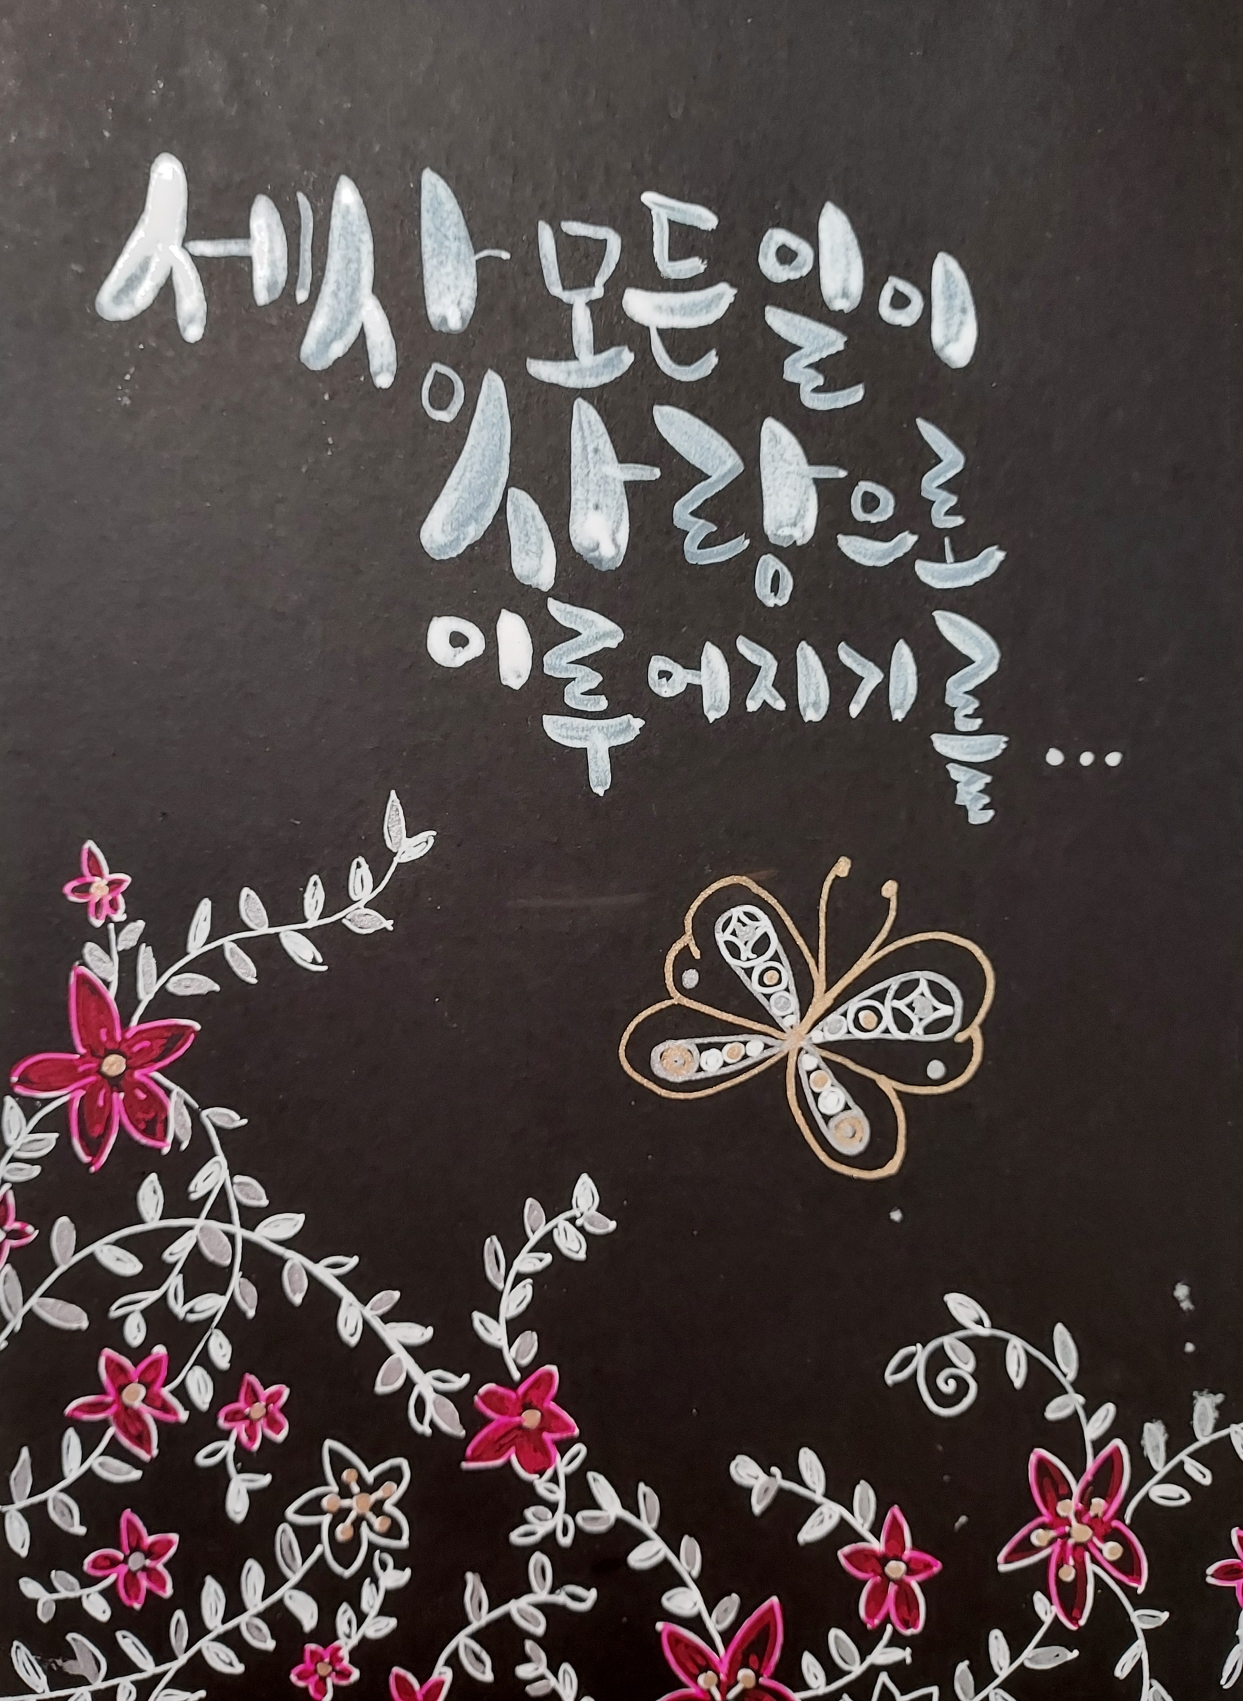 세상 모든 일이
사랑으로
이루어지기를...